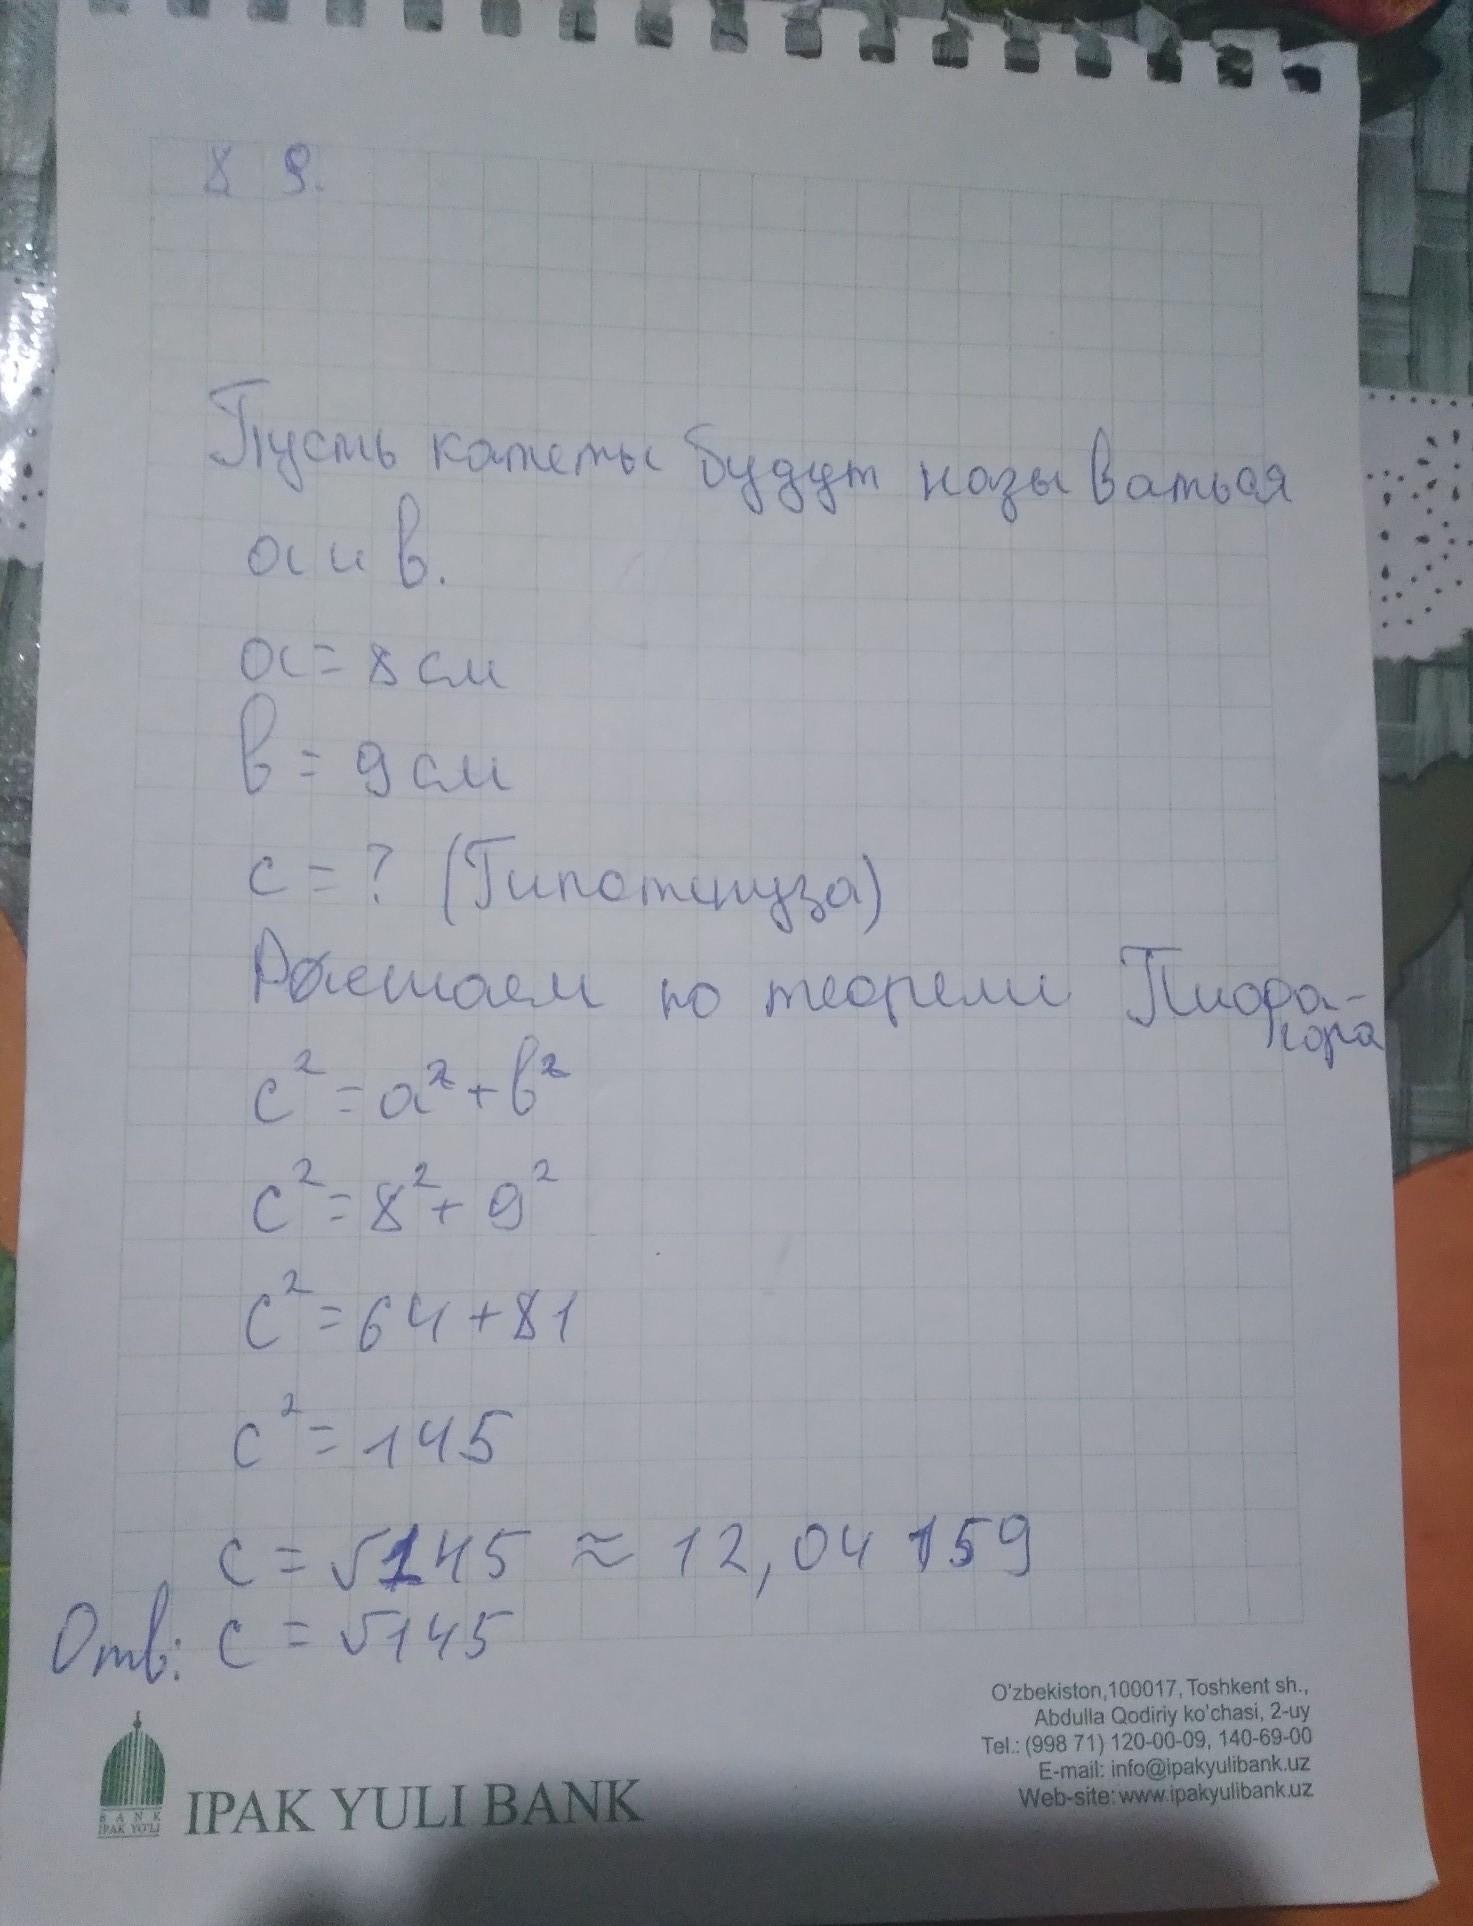 8 9.
Пусть катеты будут называться
a и b.
a = 8 см
b = 9 см
c = ? (Гипотенуза)
Решаем по теореми Пифа-
гора
c² = a² + b²
c² = 8² + 9²
c² = 64 + 81
c² = 145
c = √145 ≈ 12,04159
Отв: c = √145
O'zbekiston,100017, Toshkent sh.,
Abdulla Qodiriy ko'chasi, 2-uy
Tel.: (998 71) 120-00-09, 140-69-00
E-mail: info@ipakyulibank.uz
Web-site: www.ipakyulibank.uz
BANK
IPAK YO'LI
IPAK YULI BANK